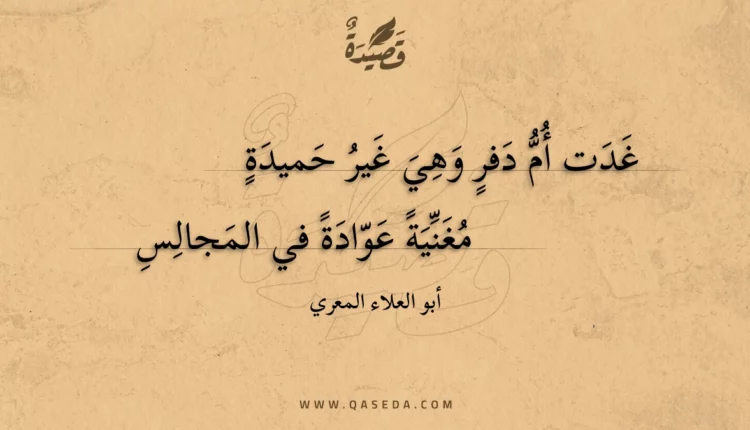 قَصِيْدَةٌ
غَدَت أُمُّ دَفرٍ وَهِيَ غَيرُ حَميدَةٍ
مُغَنِّيَةً عَوّادَةً في المَجالِسِ
أبو العلاء المعري
WWW.QASEDA.COM